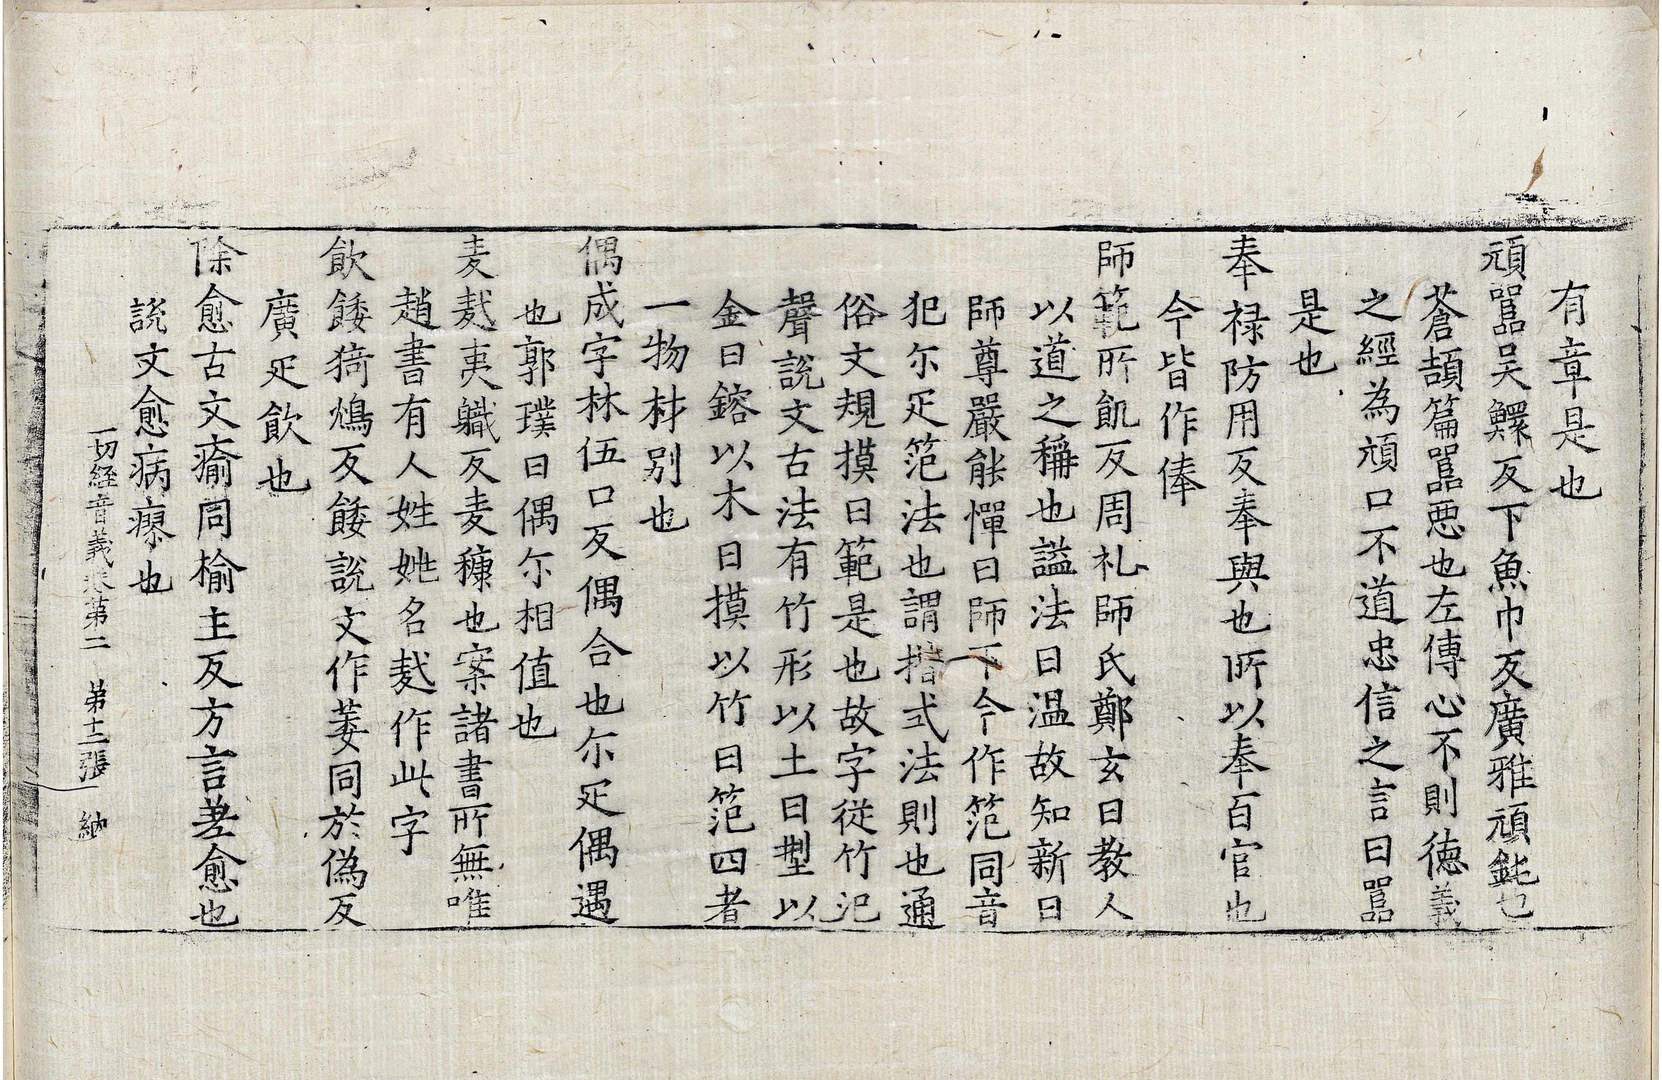 有章是也
頑嚚吴鰥反下魚巾反廣雅頑鈍也
蒼頡篇嚚惡也左傳心不則徳義
之經為頑口不道忠信之言曰嚚
是也
奉禄防用反奉與也所以奉百官也
今皆作俸
師範所飢反周礼師氏鄭玄曰教人
以道之稱也謚法曰温故知新曰
師尊嚴能憚曰師下今作笵同音
犯尓疋笵法也謂揩式法則也通
俗文規摸曰範是也故字從竹氾
聲說文古法有竹形以土曰型以
金曰鎔以木曰摸以竹曰笵四者
一物材別也
偶成字林伍口反偶合也尓疋偶遇
也郭璞曰偶尓相值也
麦䴬夷軄反麦䅽也案諸書所無唯
趙書有人姓姚名䴬作此字
飲餧猗鴆反餧說文作萎同於偽反
廣疋飲也
除愈古文瘉同榆主反方言差愈也
說文愈病瘳也
一切經音義卷第二　第十二張　納